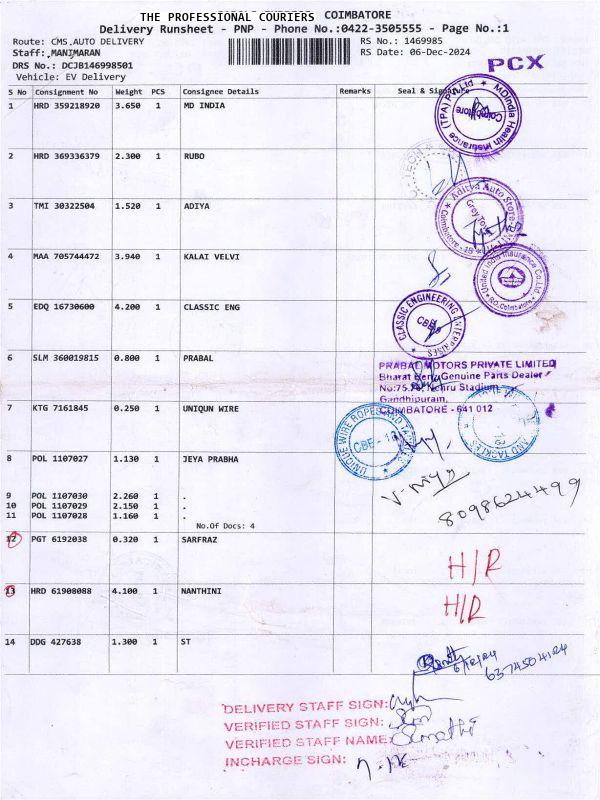 THE PROFESSIONAL COURIERS COIMBATORE
Delivery Runsheet - PNP - Phone No.:0422-3505555 - Page No.:1
Route: CMS,AUTO DELIVERY RS No.: 1469985
Staff: ,MANIMARAN RS Date: 06-Dec-2024
DRS No.: DCJB146998501
Vehicle: EV Delivery
PCX
S No Consignment No Weight PCS Consignee Details Remarks Seal & Signature
1 HRD 359218920 3.650 1 MD INDIA
MDIndia Health Insurance (TPA) Pvt Ltd
Coimbatore
2 HRD 369336379 2.300 1 RUBO
3 TMI 30322504 1.520 1 ADIYA
Aditya Auto Store
Coimbatore - 18
4 MAA 705744472 3.940 1 KALAI VELVI
United India Insurance Co.Ltd.
R.O. Coimbatore
5 EDQ 16730600 4.200 1 CLASSIC ENG
CLASSIC ENGINEERING ENTERPRISES
6 SLM 360019815 0.800 1 PRABAL
PRABAL MOTORS PRIVATE LIMITED
Bharat Benz Genuine Parts Dealer
No:75,76, Nehru Stadium
Gandhipuram,
COIMBATORE - 641 012
7 KTG 7161845 0.250 1 UNIQUN WIRE
UNIQUE WIRE ROPES AND TACKLES
CBE - 18
AND TACKLES
8 POL 1107027 1.130 1 JEYA PRABHA
9 POL 1107030 2.260 1 .
10 POL 1107029 2.150 1 .
11 POL 1107028 1.160 1 .
No.Of Docs: 4
8098624499
12 PGT 6192038 0.320 1 SARFRAZ
H/R
13 HRD 61908088 4.100 1 NANTHINI
H/R
14 DDG 427638 1.300 1 ST
6/12/24
6374504124
DELIVERY STAFF SIGN:
VERIFIED STAFF SIGN:
VERIFIED STAFF NAME: Sumathi
INCHARGE SIGN: